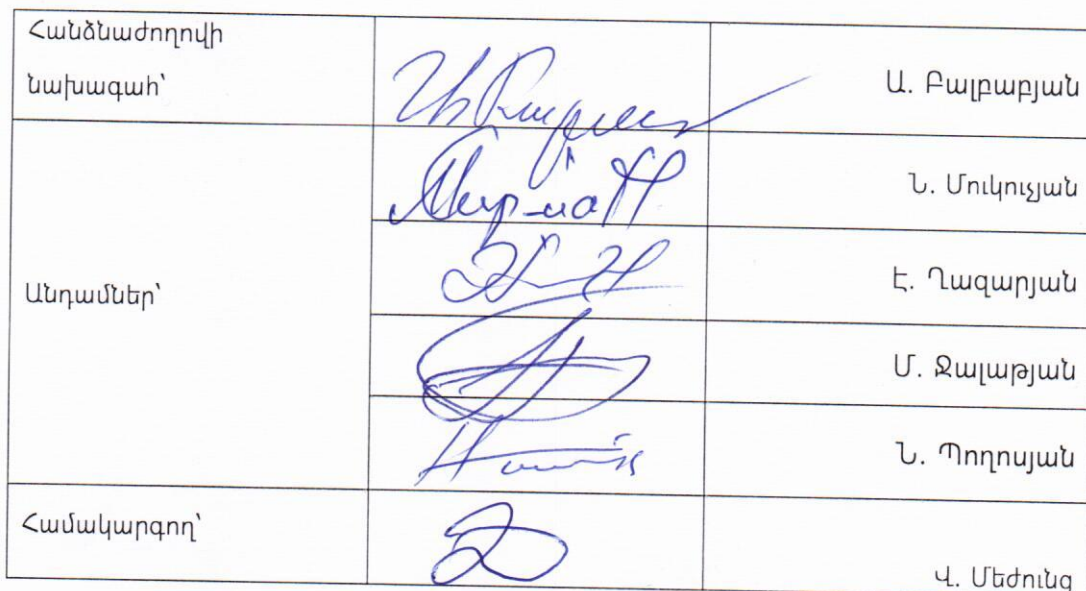 Հանձնաժողովի
նախագահ՝
Ա. Բալբաբյան
Ն. Մուկուչյան
Անդամներ՝
Է. Ղազարյան
Մ. Ջալաթյան
Ն. Պողոսյան
Համակարգող՝
Վ. Մեժունց